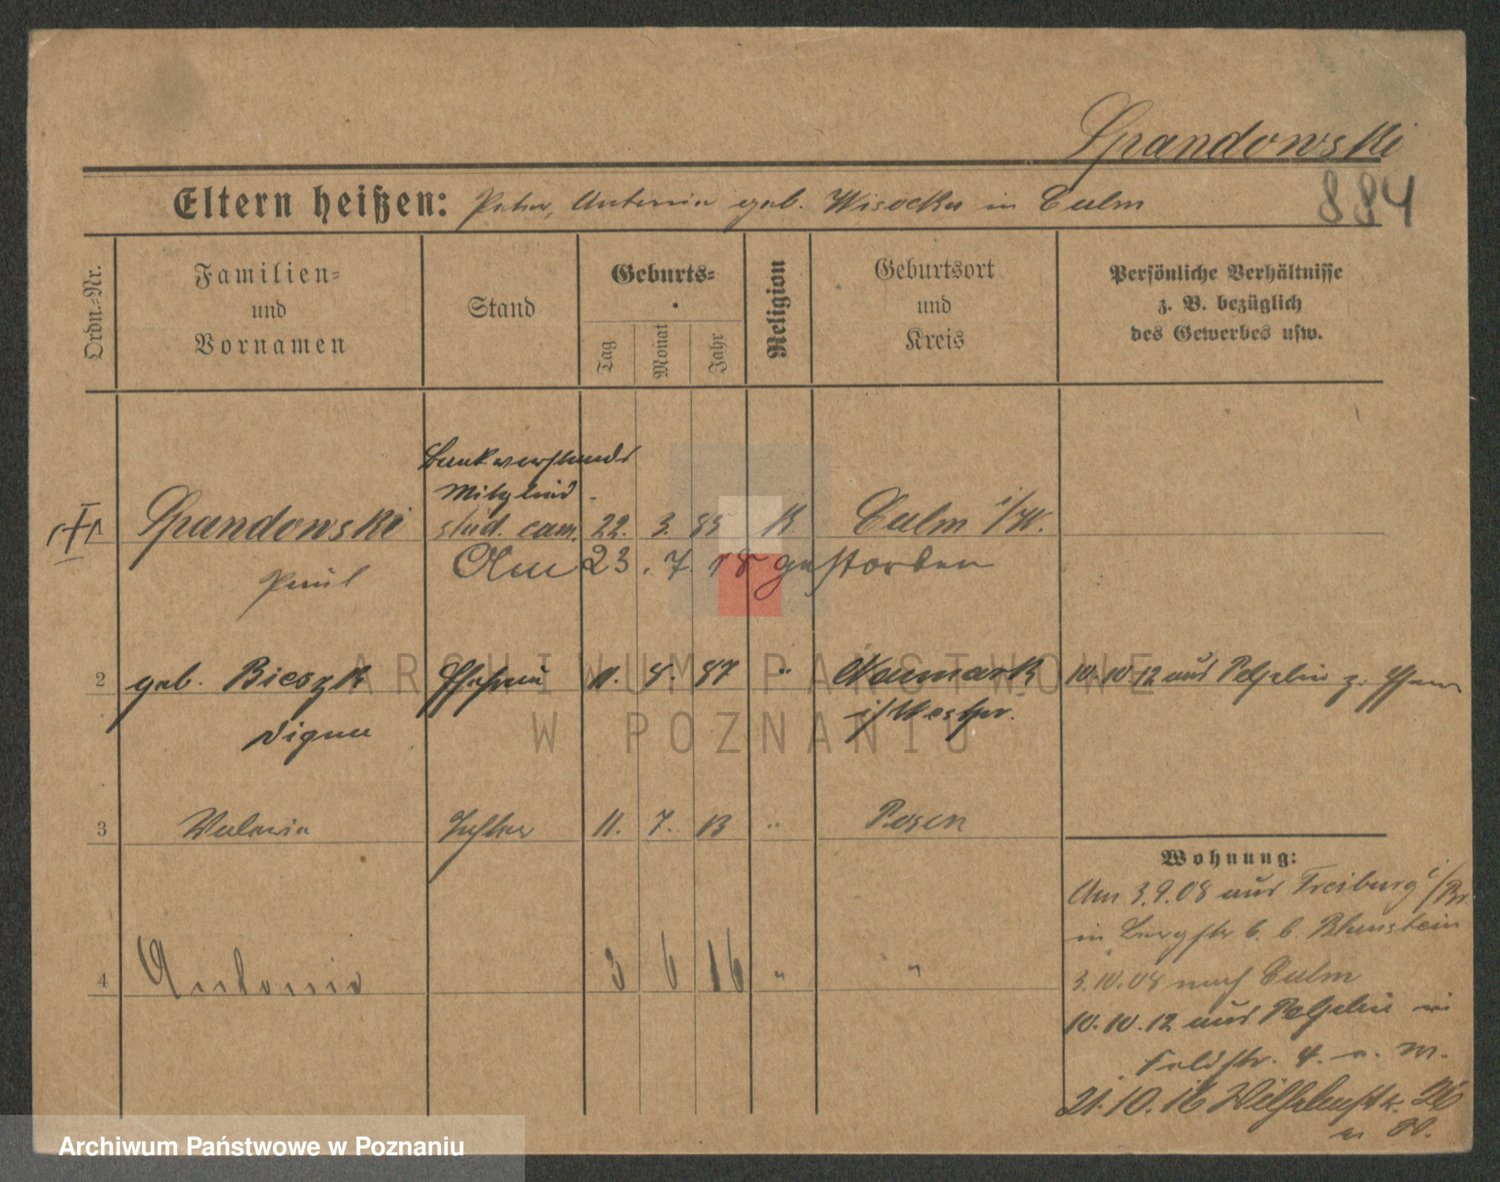 Spandowski
884
Eltern heißen: Peter, Antonia geb. Wisocka in Culm
Ordn.=Nr.
Familien=
und
Vornamen
Stand
Geburts=
Tag
Monat
Jahr
Religion
Geburtsort
und
Kreis
Persönliche Verhältnisse
z. B. bezüglich
des Gewerbes usw.
Bankvorstands
Mitglied
Spandowski stud. cam. 22. 3. 85 K Culm i/W.
Paul
Am 23. 7. 18 gestorben
2 geb. Bieszk Ehefrau 11. 8. 87 " Neumark 10.10.12 aus Pelplin z.
i/Westpr.
3 Valeria Tochter 11. 7. 13 " Posen
Wohnung:
Am 3.9.08 aus Freiburg i/Br.
in Bergstr 6. b.
3.10.08 nach Culm
4 Antonia 3 6 16 " "
10.10.12 aus Pelplin in
Feldstr. 4.
21.10.16 Wilhelmstr. 26
ARCHIWUM PAŃSTWOWE
W POZNANIU
Archiwum Państwowe w Poznaniu